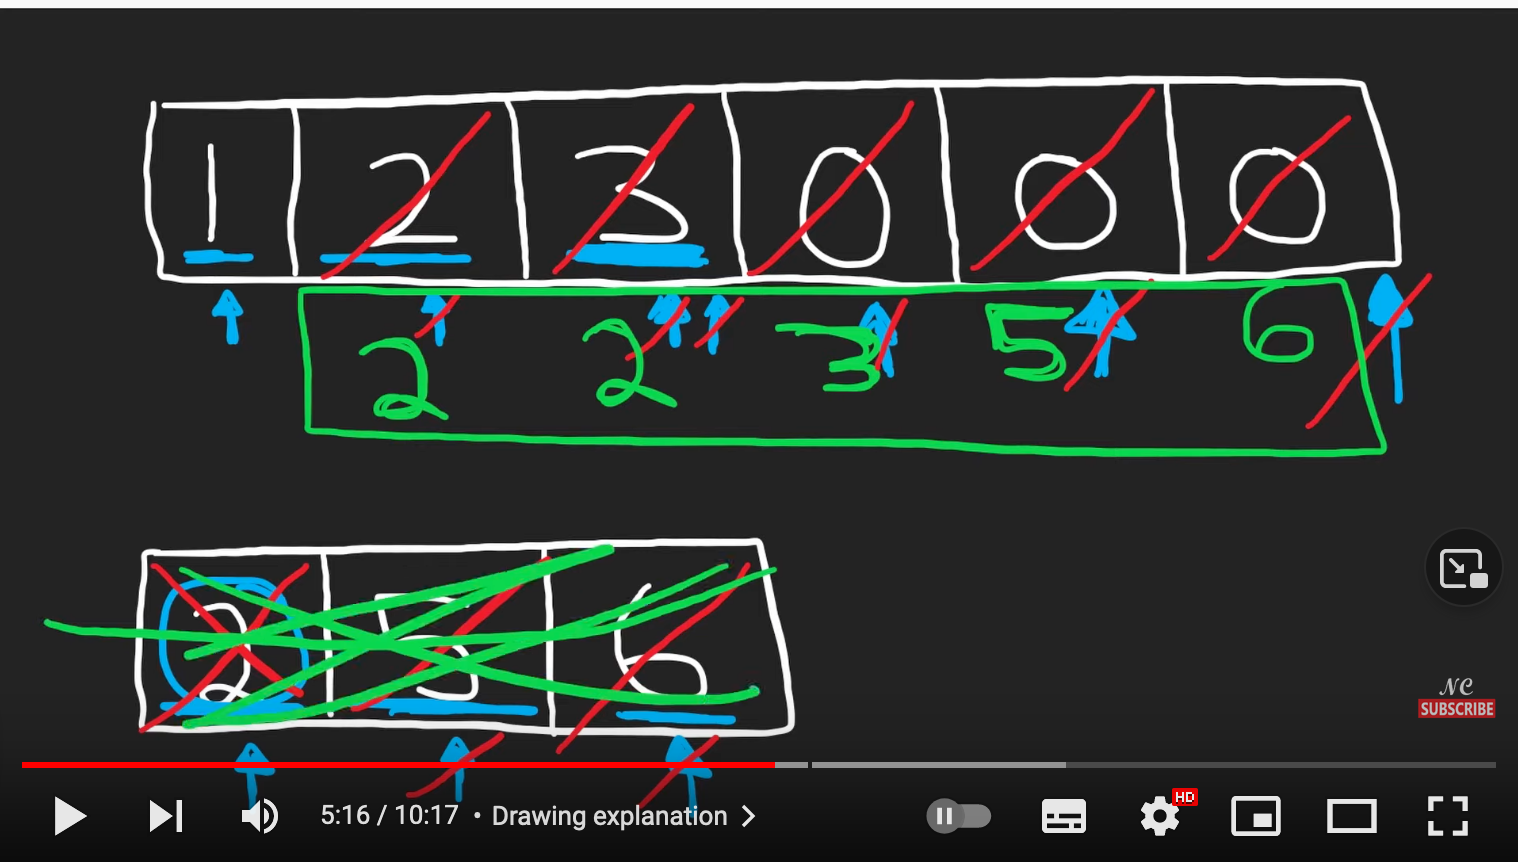 1 2 3 0 0 0
2 2 3 5 6
2 5 6
NC
SUBSCRIBE
5:16 / 10:17 • Drawing explanation
HD